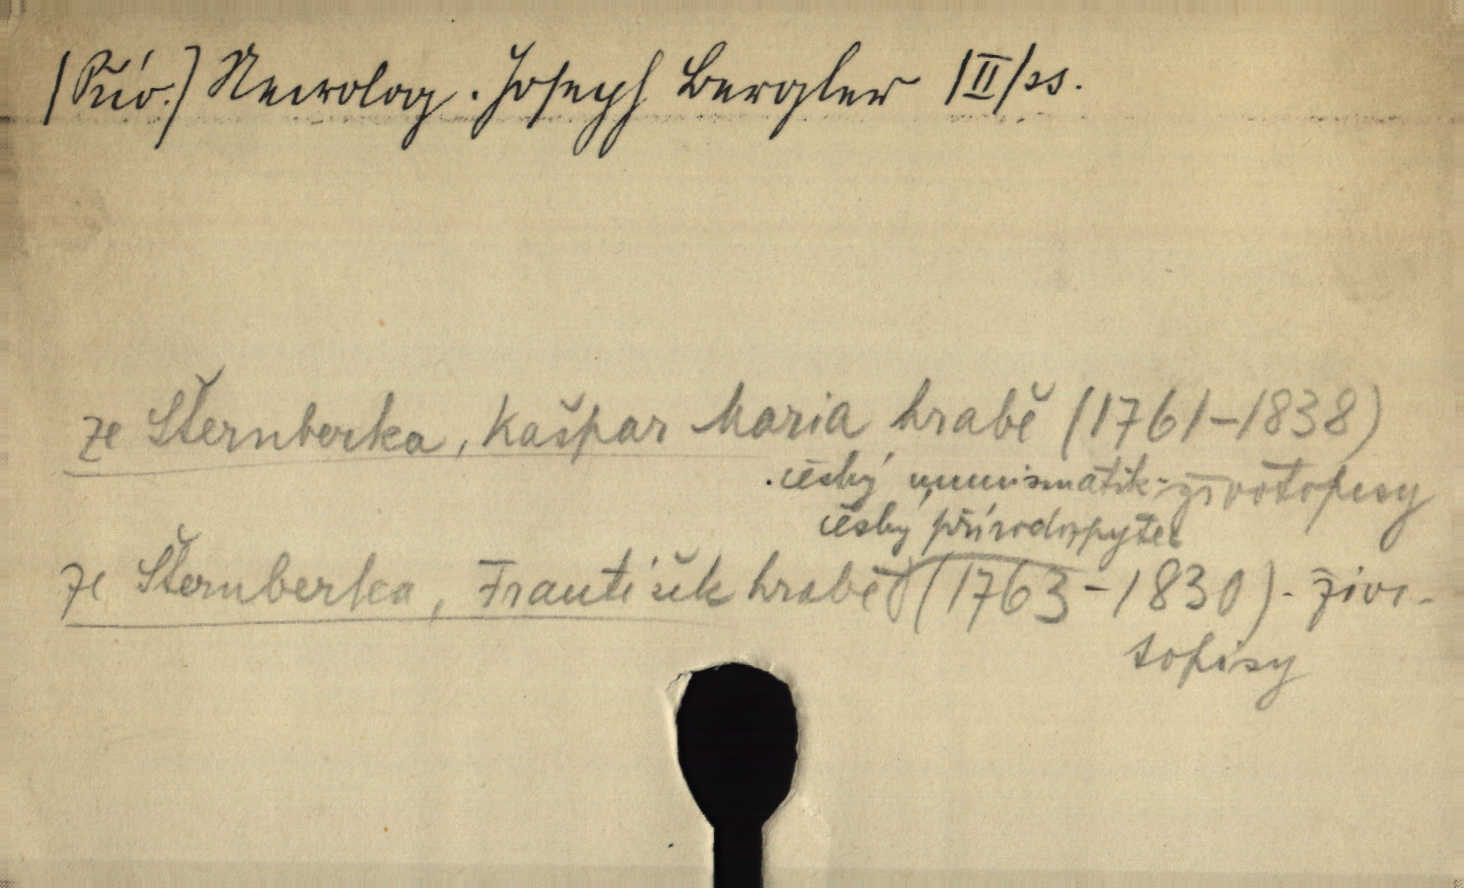 (Přív.) Necrolog. Joseph Bergler |II|ss.
ze Šternberka, Kašpar Maria hrabě (1761-1838)
český numismatik - životopisy
český přírodozpytec
ze Šternberka, František hrabě (1763-1830). živo-
topisy